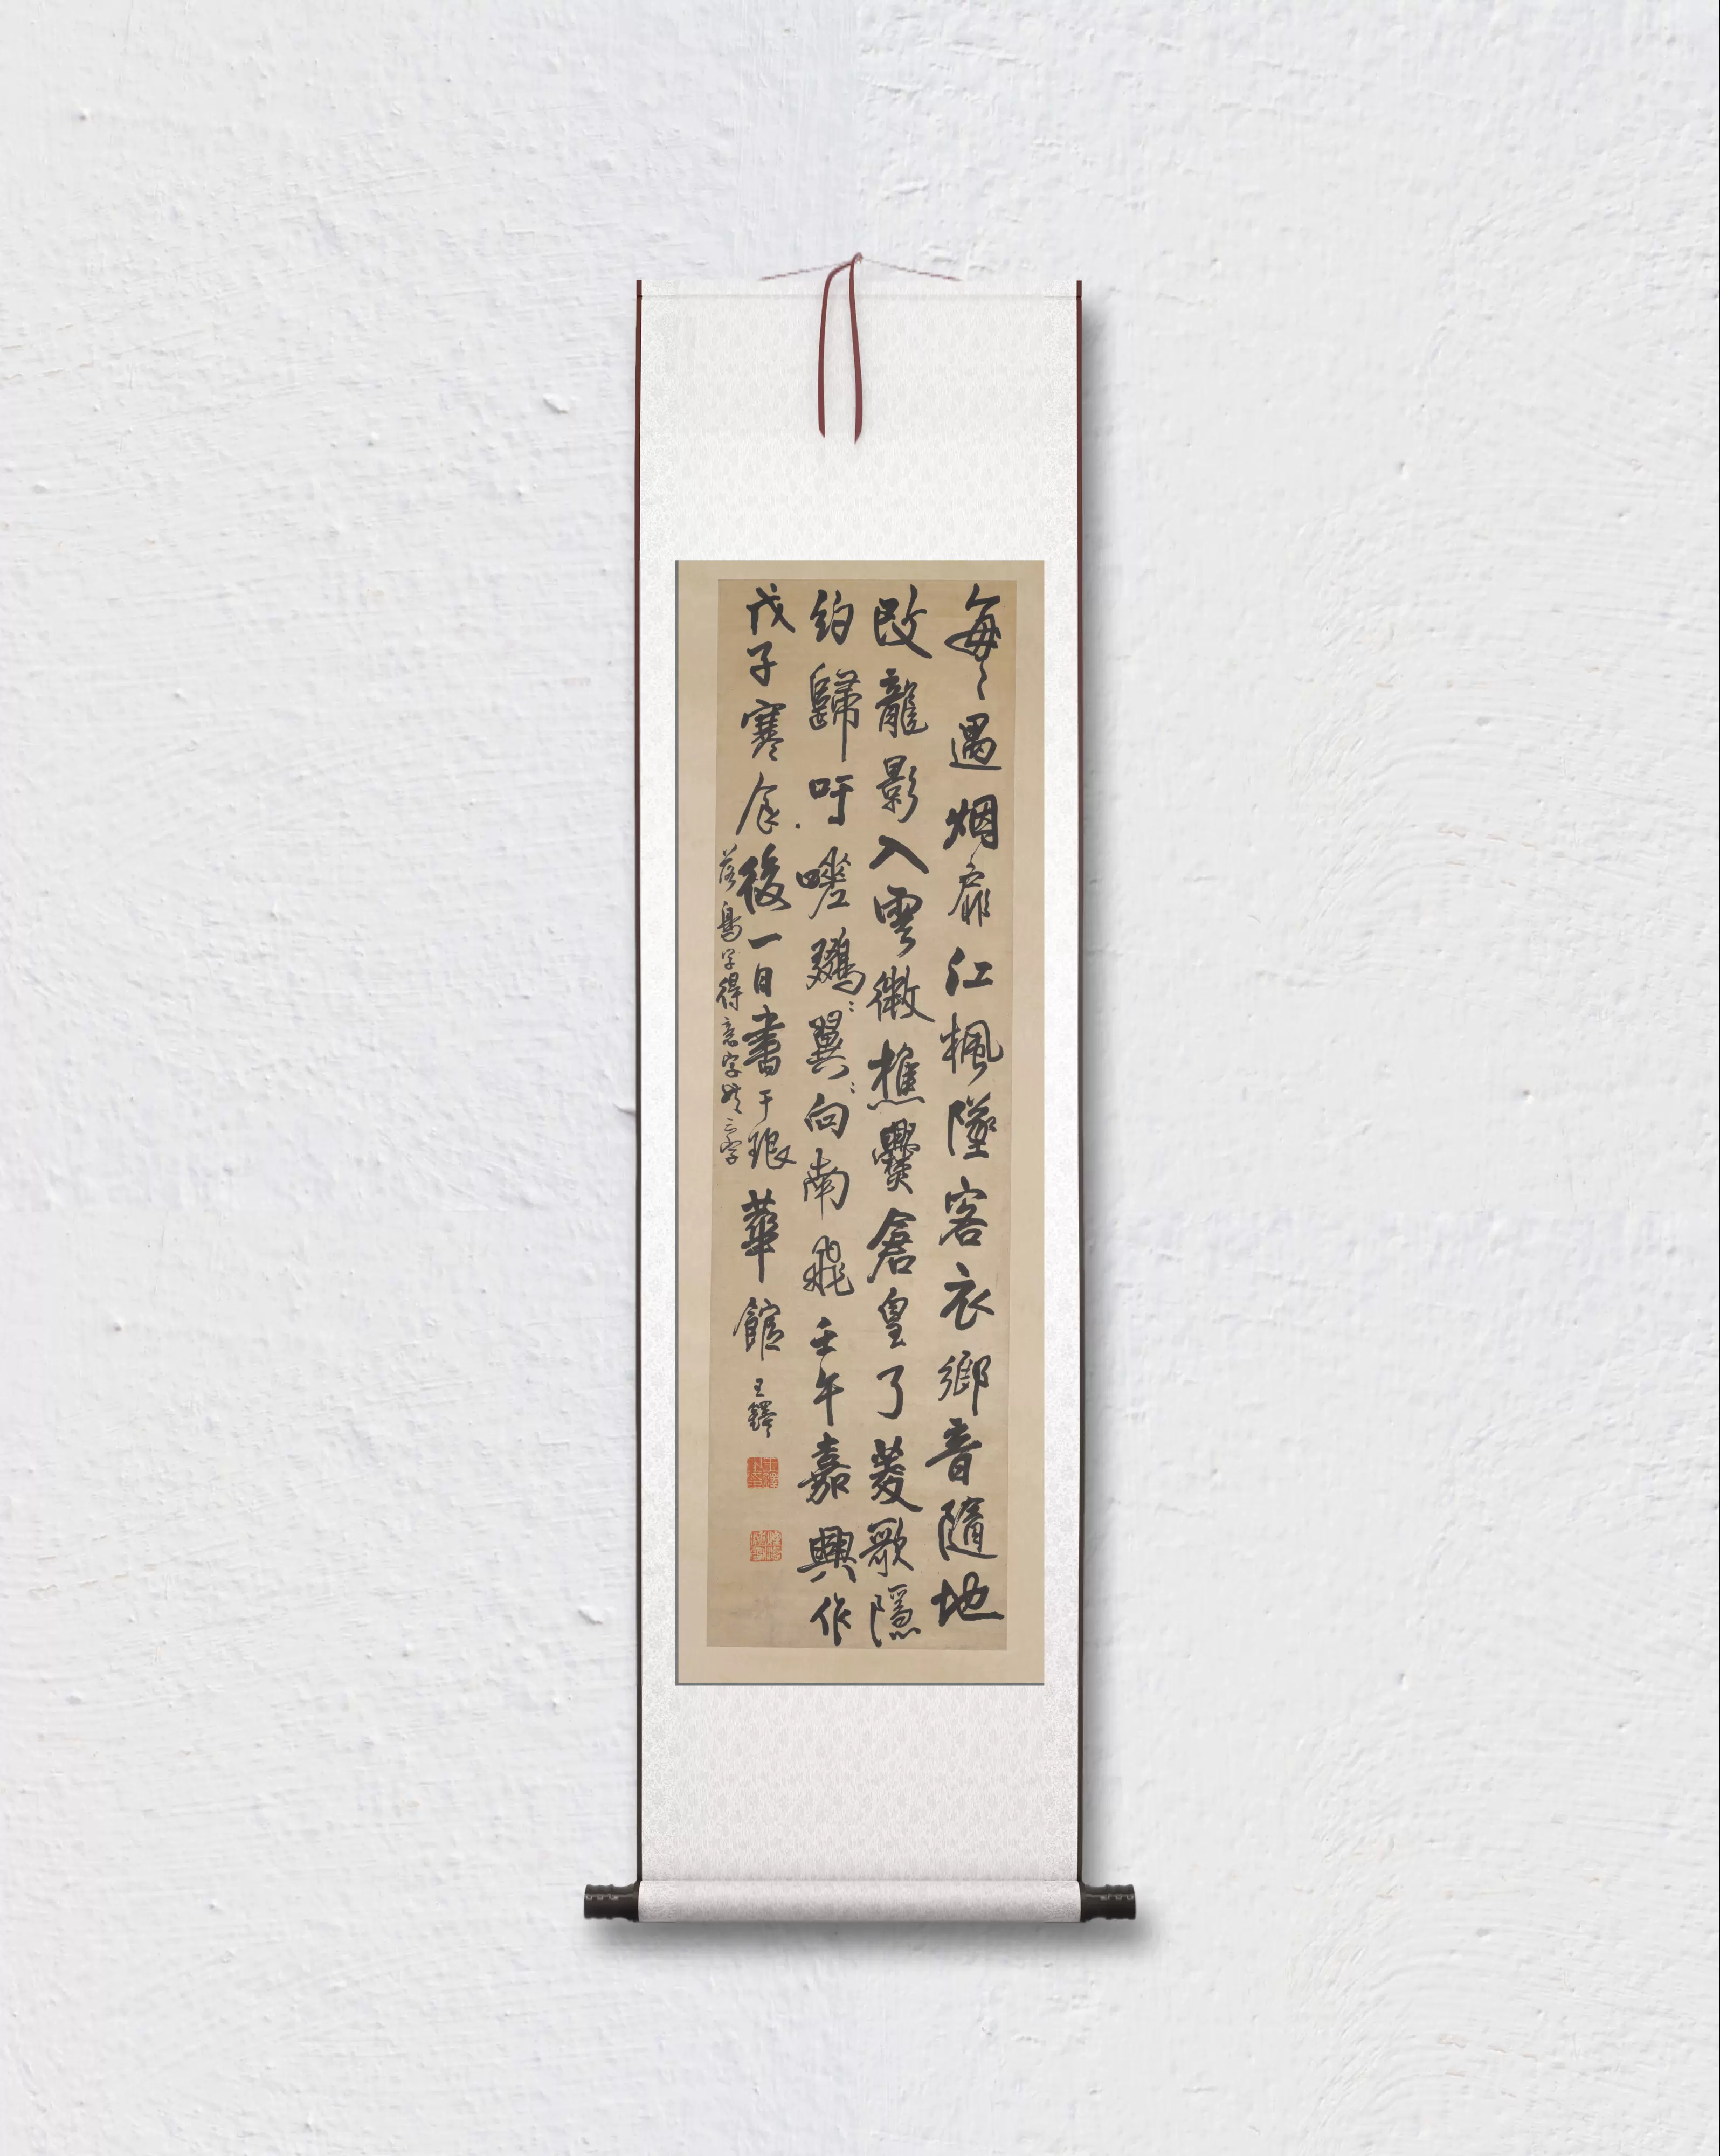 每〻遇烟扉江楓墜客衣鄉音隨地
改龍影入雲微樵爨倉皇了菱歌隱
約歸吁嗟翼向南飛壬午嘉興作
戊子寒食後一日書于琅華館王鐸
落鳥字得意字三字